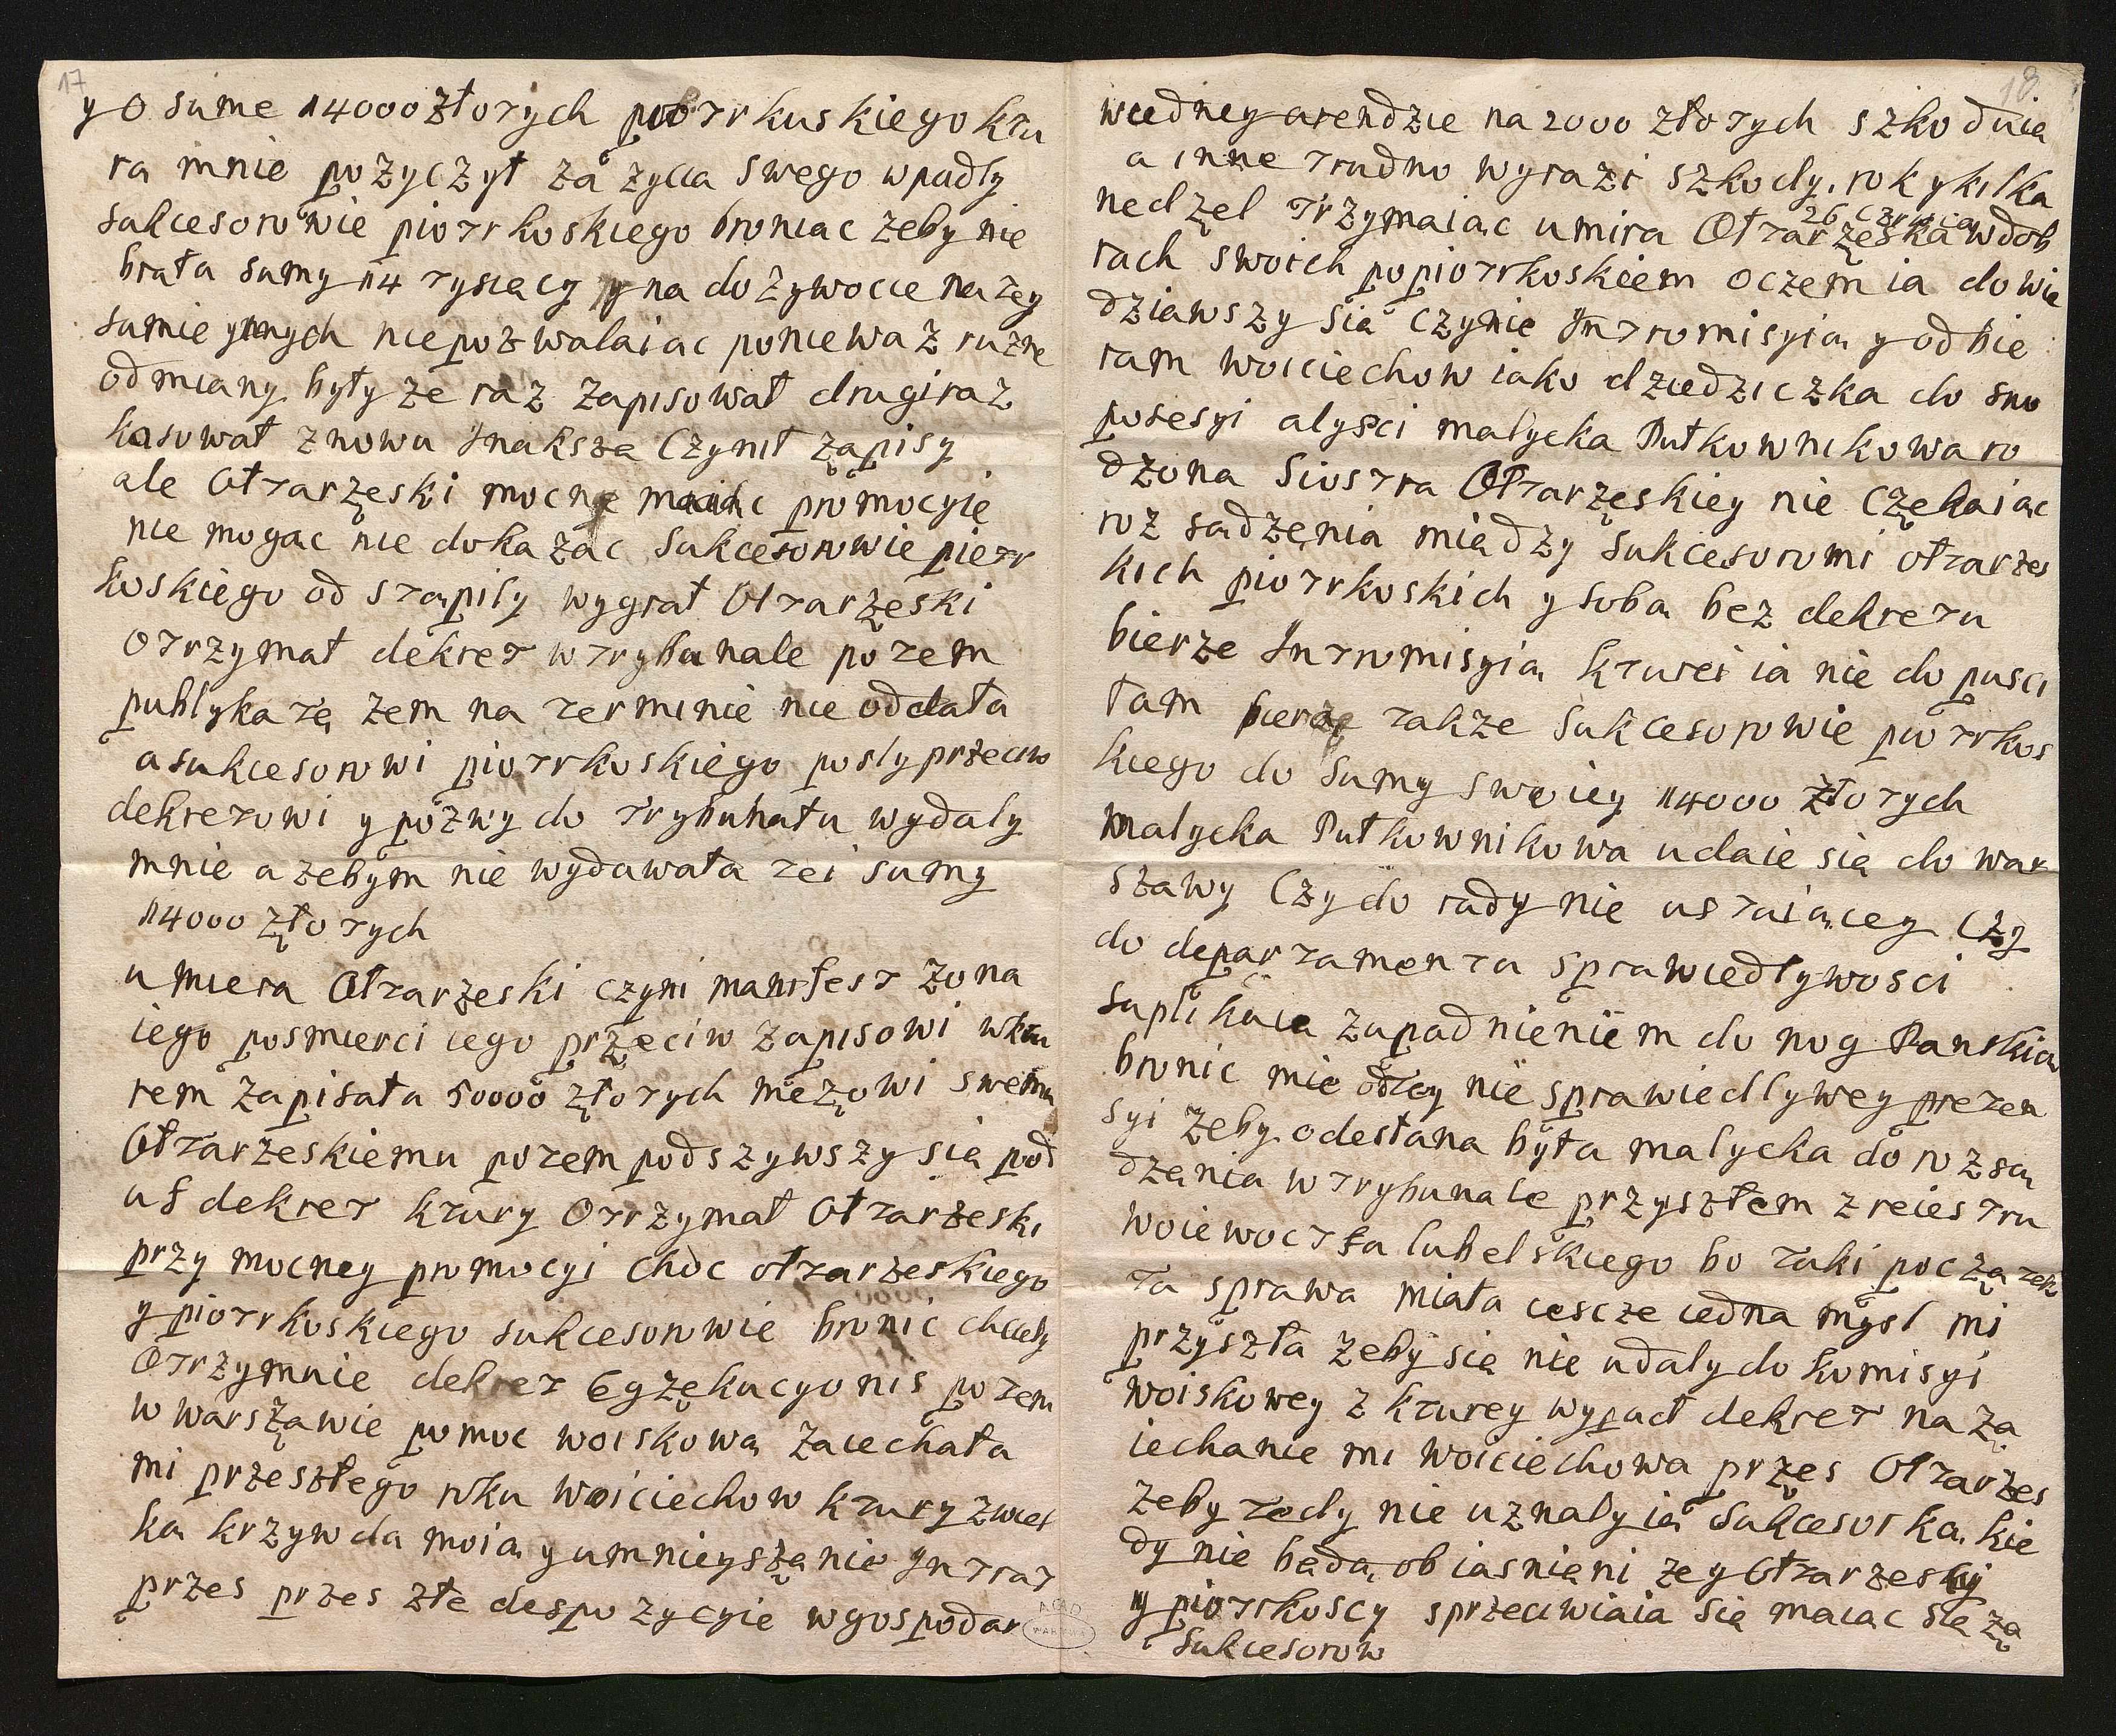 17
y o sume 14000 złotych piotrkuskiego ktu
ra mnie pożyczył za zycia swego wpadły
sukcesorowie piotrkoskiego broniac zeby nie
brała sumy 14 tysiacy y na dożywocie na tey
sumie ynnych niepozwalaiac poniewaz ruzne
odmiany były ze raz zapisował drugi raz
kasował znowu Jnaksze czynił zapisy
ale Otwarzeski mocne maiac promocyie
nie mogac nie dokazac Sukcesorowie piotr
koskiego odstapily wygrał Otarzeski
otrzymał dekret w trybunale potem
publykate zem na terminie nie oddała
a sukcesorowi piotrkoskiego posly przeciw
dekretowi y pozwy do trybunatu wydaly
mnie a zebym nie wydawała tei sumy
14000 złotych
umiera Otarzeski czyni manifest zona
iego posmierci iego przeciw zapisowi wktu
rem zapisała 50000 złotych mezowi swemu
Otarzeskiemu potem podszywszy sia pod
uf dekret ktury Otrzymał Otarzeski
przy mocney promocyi choc otarzeskiego
y piotrkoskiego sukcesorowie bronic chcieły
otrzymuie dekret Egzekucyonis potem
w warszawie pomoc woiskowa zaiechała
mi przeszłego roku Woiciechow ktury zwiel
ka krzywda moia y umnieyszenie Jntrat
przes przes złe despozycyie wgospodar
18
wiedney arendzie na 2000 złotych szkoduie
a inne trudno wyrazi szkody. rok y kilka
nedzel trzymaiac umira Otarzeska 26 czrwca wdob
rach swoich popiotrkoskiem oczem ia dowie
dziawszy sia czynie Jntromisyia y odbie
ram woiciechow iako dziedziczka do swo
posesyi alysci malycka Pułkownikowa ro
dzona Siostra Otarzeskiey nie czekaiac
roz sadzenia miadzy Sukcesoromi otarzes
kich piotrkoskich y soba bez dekretu
bierze Jntromisyia kturei ia nie dopusci
łam bierze takze Sukcesorowie piotrkos
kiego do Sumy swoiey 14000 złotych
Malycka Pułkownikowa udaie sia do war
szawy czy do rady nie ustaiacey czy
do departamenta sprawiedływosci
suplikuia zupadnieniem do nog Panskia
bronic mie odtey nie sprawiedlywey preten
syi zeby odesłana była malycka do rozsa
dzenia w trybunale przyszłem z reiestru
woiewoctfa lubelskiego bo taki poczatek
ta sprawa miała iescze iedna mysl mi
przyszła zeby sie nie udały do komisyi
woiskowey z kturey wypadł dekret na za
iechanie mi woiciechowa przes Otarzes
zeby tedy nie uznaly ia Sukcesorka. kie
dy nie beda obiasnieni ze y Otarzeskij
y piotrkoscy sprzeciwiaia sia maiac sie za
Sukcesorow